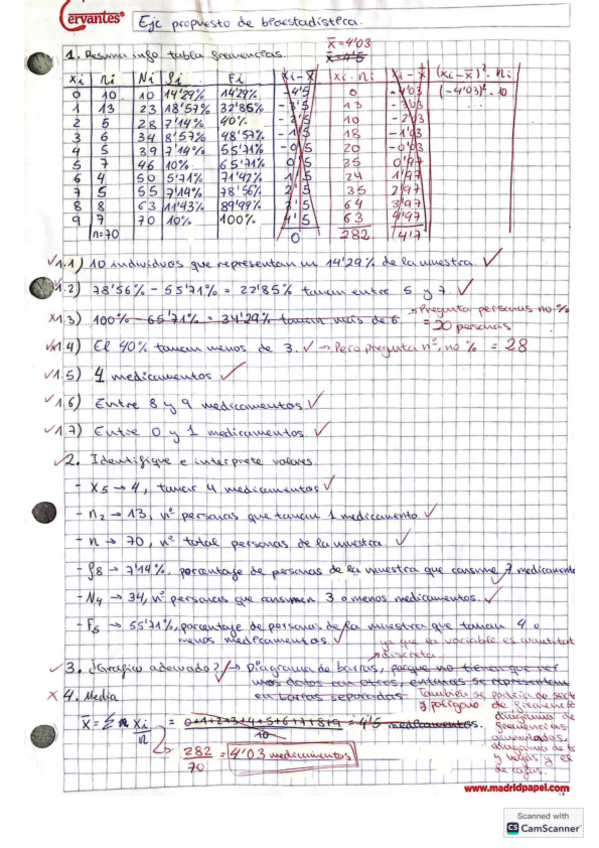 Cervantes®
Eje propuesto de bioestadística.
x̄=4'03
x̄=4'5
1. Resumir info tabla frecuencias.
xi ni Ni fi Fi xi-x̄ xi·ni xi-x̄ (xi-x̄)²·ni
0 10 10 14'29% 14'29% -4'5 0 -4'03 (-4'03)²·10
1 13 23 18'57% 32'86% -3'5 13 -3'03 ...
2 5 28 7'14% 40% -2'5 10 -2'03
3 6 34 8'57% 48'57% -1'5 18 -1'03
4 5 39 7'14% 55'71% -0'5 20 -0'03
5 7 46 10% 65'71% 0'5 35 0'97
6 4 50 5'71% 71'42% 1'5 24 1'97
7 5 55 7'14% 78'56% 2'5 35 2'97
8 8 63 11'43% 89'99% 3'5 64 3'97
9 7 70 10% 100% 4'5 63 4'97
n=70 0 282 4'7
1.1) 10 individuos que representan un 14'29% de la muestra.
1.2) 78'56% - 55'71% = 22'85% toman entre 5 y 7.
1.3) 100% - 65'71% = 34'29% toman más de 6. → Pregunta personas no %
= 20 personas
1.4) El 40% toman menos de 3. → Pero pregunta nº, no % = 28
1.5) 4 medicamentos
1.6) Entre 8 y 9 medicamentos.
1.7) Entre 0 y 1 medicamentos.
2. Identifique e interprete valores.
- X5 → 4, toman 4 medicamentos
- n2 → 13, nº personas que toman 1 medicamento
- n → 70, nº total personas de la muestra.
- f8 → 7'14%, porcentaje de personas de la muestra que consume 7 medicamento
- N4 → 34, nº personas que consumen 3 o menos medicamentos.
- F5 → 55'71%, porcentaje de personas de la muestra que toman 4 o
menos medicamentos.
ya que la variable es cuantitat
discreta
3. ¿Gráfico adecuado? → Diagrama de barras, porque no tienen que ver
unos datos con otros, entonces se representan
en barras separadas.
También se podría de sect
4. Media
y polígono de frecuencia
x̄ = Σ xi/n = 0+1+2+3+4+5+6+7+8+9/10 = 4'5 medicamentos.
diagrama de
frecuencias
acumuladas,
282/70 = 4'03 medicamentos
de cajas.
www.madridpapel.com
Scanned with
CS CamScanner